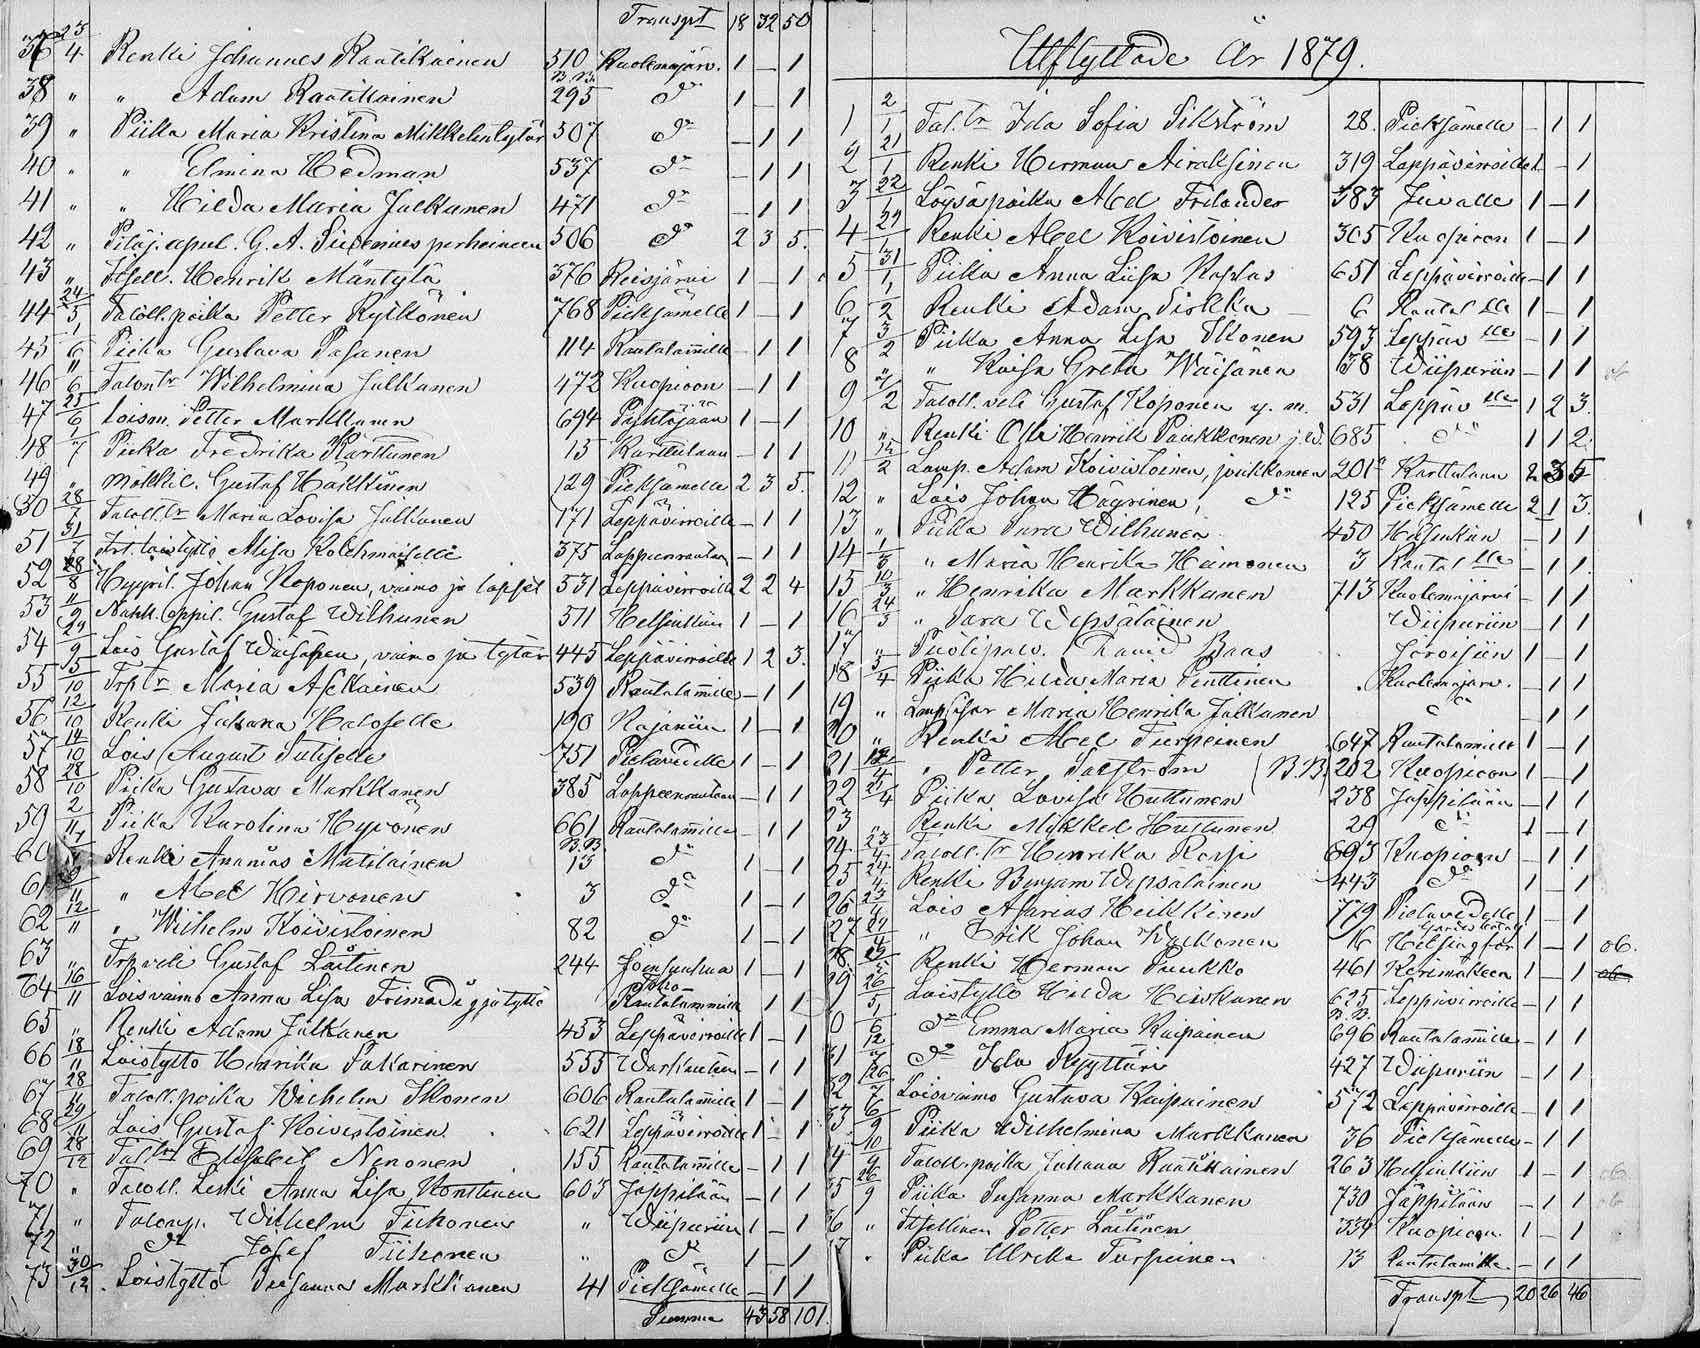 Transpt 18 32 50
36 23/4 Renki Johannes Raatikainen 510 Kuolemajärv. 1 – 1
38 " " Adam Raatikainen B.B. 295 do 1 – 1
39 " Piika Maria Kristina Mikkelintytär 507 do – 1 1
40 " " Elmina Hedman 537 do – 1 1
41 " " Hilda Maria Julkunen 471 do – 1 1
42 " Pitäj. apul. G. A. perheineen 506 do 2 3 5.
43 " Itsell. Henrik Mäntylä 376 Reisjärvi 1 – 1
44 24/5 Taloll. poika Petter Rytkönen 768 Pieksjämelle 1 – 1
45 1/6 Piika Gustava Pasanen 114 Rautalammille – 1 1
46 11/6 Talontr Wilhelmina Julkunen 472 Kuopioon – 1 1
47 25/6 Loism. Petter Markkanen 694 1 – 1
48 1/7 Piika Fredrika Karttunen 15 Karttulaan – 1 1
49 " Mökkil. Gustaf Häkkinen 129 Pieksjämelle 2 3 5.
50 28/7 Taloll. tr Maria Lovisa Julkunen 171 Leppävirroille – 1 1
51 31/7 loistyttö Alisa Kolehmaiselle 375 Lappeenrantaan – 1 1
52 28/8 Johan Koponen, vaimo ja lapset 531 Leppävirroille 2 2 4
53 11/9 oppil. Gustaf Wilhunen 511 Helsinkiin 1 – 1
54 29/9 Lois Gustaf Wäisänen, vaimo ja tytär 445 Leppävirroille 1 2 3.
55 5/10 Trp tr Maria Asikainen 539 Rautalammille – 1 1
56 12/10 Renki Juhana Haloselle 190 Kajaniin 1 – 1
57 14/10 Lois August 751 Pielavedelle 1 – 1
58 28/10 Piika Gustava Markkanen 385 Lappeenrantaan – 1 1
59 2/11 Piika Karolina Hyvönen 661 Rautalammille – 1 1
60 Renki Ananias Mutilainen B.B. 13 do 1 – 1
61 " Abel Hirvonen 3 do 1 – 1
62 12/11 " Wilhelm Koivistoinen 82 do 1 – 1
63 " Trp. veli Gustaf Laitinen 244 Joensuuhun 1 – 1
64 16/11 Loisvaimo Anna Lisa ja tyttö Rautalammille 1 1
65 " Renki Adam Julkunen 453 Leppävirroille 1 – 1
66 18/11 Loistyttö Henrika Pakarinen 555 Warkauteen – 1 1
67 28/11 Taloll. poika Wilhelm Ikonen 606 Rautalammille 1 – 1
68 29/11 Lois Gustaf Koivistoinen 621 Leppävirroille 1 – 1
69 28/12 Tal tr Elisabet Ninonen 155 Rautalammille – 1 1
70 " Taloll. Leski Anna Lisa Konttinen 603 Jäppilään – 1 1
71 " Talonp. Wilhelm Tiihonen " Wiipuriin 1 – 1
72 " do Josef Tiihonen " do 1 – 1
73 30/12 Loistyttö Susanna Markkanen 41 Pieksjämelle – 1 1
Summa 43 58 101.
Utflyttade År 1879.
1 2/1 Tal. tr Ida Sofia Silström 28. Pieksjämelle – 1 1
2 21/1 Renki Herman Airaksinen 319 Leppävirroille 1 – 1
3 22/1 Löysäpoika Abel Frilander 383 Juvalle 1 – 1
4 29/1 Renki Abel Koivistoinen 305 Kuopioon 1 – 1
5 31/1 Piika Anna Liisa 651 Leppävirroille – 1 1
6 1/2 Renki Adam 6 Rautal lle 1 – 1
7 3/2 Piika Anna Lisa Ikonen 593 Leppäv lle – 1 1
8 " " Kaisa Greta Wäisänen 38 Wiipuriin – 1 1
9 7/2 Taloll. veli Gustaf Koponen y. m. 531 Leppäv lle 1 2 3.
10 " Renki Olli Henrik Paukkonen 685 do 1 1 2
11 12/2 Lamp. Adam Koivistoinen, joukkoneen 201 Karttulaan 2 3 5
12 " Lois Johan Häyrinen, do 125 Pieksjämelle 2 1 3.
13 " Piika Sara Wilhunen 450 Helsinkiin – 1 1
14 1/3 " Maria Henrika Heimonen 3 Rautal lle – 1 1
15 10/3 " Henrika Markkanen 713 Kuolemajärvi – 1 1
16 24/3 " Sara Wepsäläinen Wiipuriin – 1 1
17 " David Baas Joroisiin 1 – 1
18 5/4 Piika Hilda Maria Penttinen Kuolemajärv. – 1 1
19 " Maria Henrika Julkunen do – 1 1
20 " Renki Abel Turpeinen 647 Rautalammille 1 – 1
21 12/4 " Petter Salström (B.B. 202 Kuopioon 1 – 1
22 21/4 Piika Lovisa Huttunen 238 Jäppilään – 1 1
23 " Renki Mikkel Huttunen 29 do 1 – 1
24 23/4 Taloll. tr Henrika Rossi 693 Kuopioon – 1 1
25 24/4 Renki Benjam Wepsäläinen 443 do 1 – 1
26 25/4 Lois Asarias Heikkinen 779 Pielavedelle 1 – 1
27 27/4 " Erik Johan 16 Helsingfors 1 – 1 ob.
28 Renki Herman Puukko 461 Kerimäkeen 1 – 1 ob.
29 26/5 Loistyttö Hilda Hirvkanen 625 Leppävirroille – 1 1
0 1/6 do Emma Maria Kaipainen B.B. 696 Rautalammille – 1 1
31 12/7 do Ida 427 Wiipuriin – 1 1
32 26/7 Loisvaimo Gustava Kaipainen 572 Leppävirroille – 1 1
33 6/9 Piika Wilhelmina Markkanen 36 Pieksjämelle – 1 1
4 10/9 Taloll. poika Juhana Raatikainen 263 Helsinkiin 1 – 1 ob
35 26/9 Piika Susanna Markkanen 730 Jäppilään – 1 1 ob
36 " Itsellinen Petter Laitinen 334 Kuopioon 1 – 1
" Piika Ulrika Turpeinen 13 Rautalamille – 1 1
Transpt 20 26 46